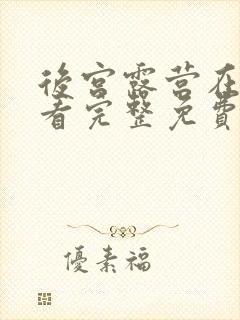 後宮露营在
看完整免費
優素福